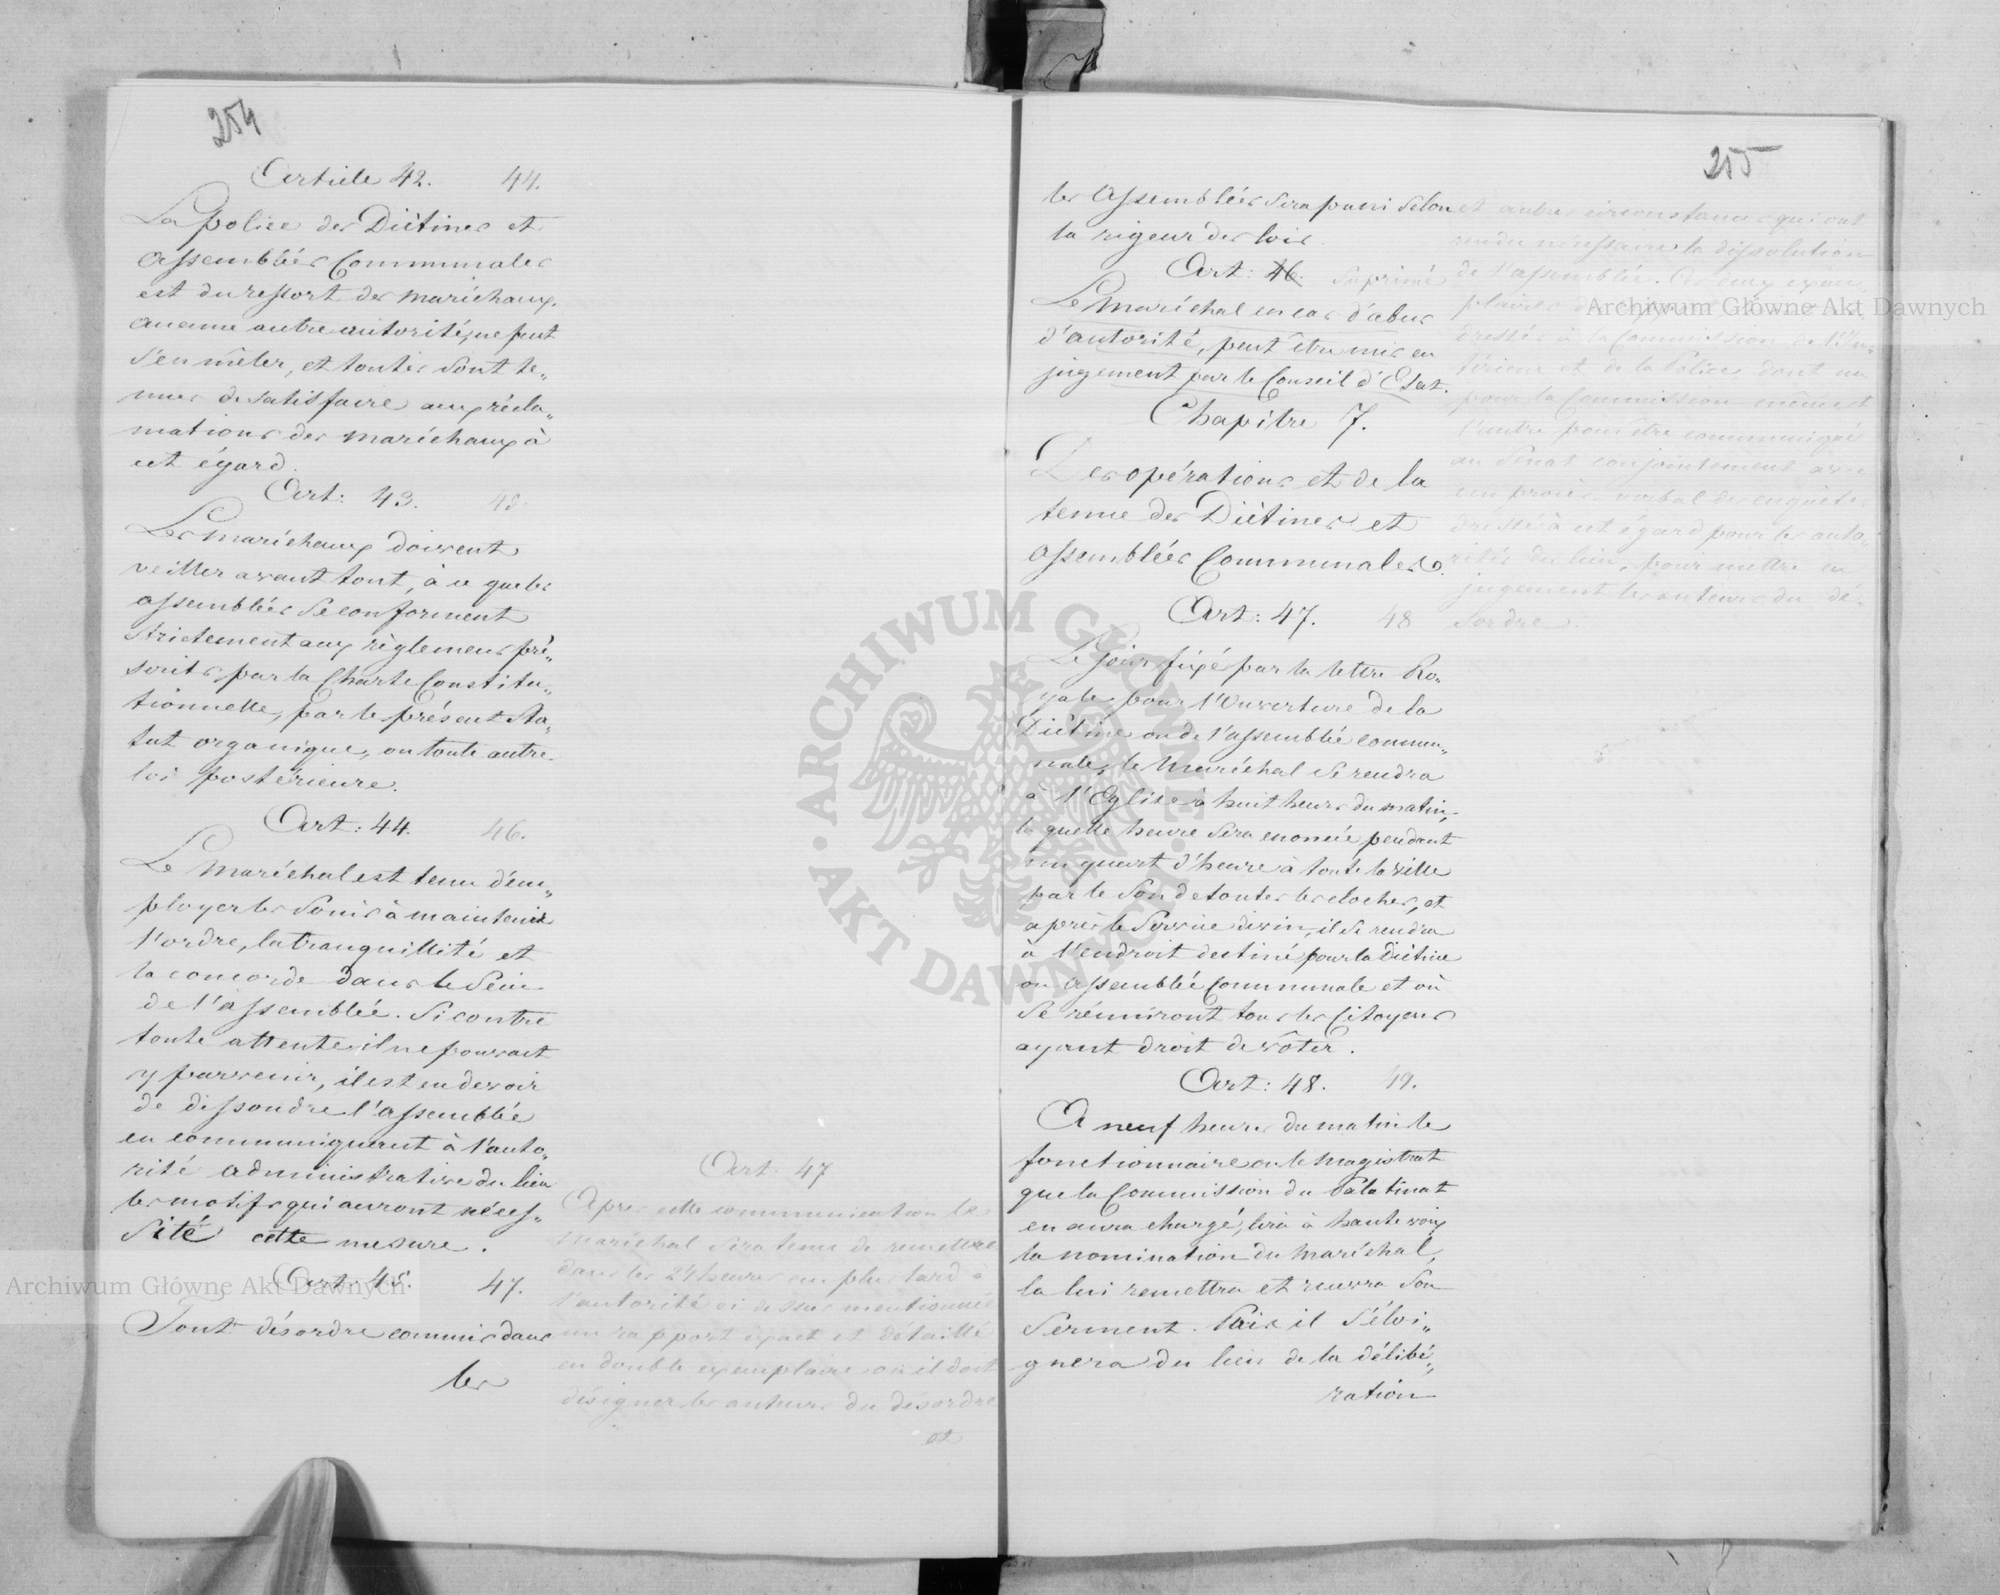 254
Article 42. 44.
La police des Diètines et
assemblées Communales
est du ressort des maréchaux.
aucune autre autorité, ne peut
s'en mêler, et toutes sont te„
nues de satisfaire aux récla„
mations des maréchaux à
cet égard.
Art: 43. 45.
Les maréchaux doivent
veiller avant tout, à ce que les
assemblées se conforment
strictement aux règlemens pré„
scrits, par la Charte Constitu„
tionnelle, par le présent Sta„
tut organique, ou toute autre
loi postérieure.
Art: 44. 46.
Le Maréchal est tenu d'em„
ployer les soins à maintenir
l'ordre, la tranquillité et
la concorde dans le sein
de l'assemblée. Si contre
toute attente il ne pouvait
y parvenir, il est en devoir
de dissoudre l'assemblée
en communiquant à l'auto„
rité administrative du lieu
les motifs qui auront néces„
sité cette mesure.
Art: 45. 47.
Tout désordre commis dans
les
Art. 47
Après cette communication le
Maréchal sera tenu de remettre
dans les 24 heures au plus tard à
l'autorité ci dessus mentionnée
un rapport exact et détaillé
en double exemplaire où il doit
désigner les auteurs du désordre
et
255
les Assemblées sera puni selon
la rigeur des lois.
Art: 46. suprimé
Le Maréchal en cas d'abus
d'autorité, peut être mis en
jugement par le Conseil d'Etat.
Chapître 7.
Des opérations et de la
tenue des Diètines et
assemblées Communales.
Art: 47. 48
Le jour fixé par la lettre Ro„
yale, pour l'Ouverture de la
Diètine ou de l'assemblée commu„
nale, le Maréchal se rendra
à l'Eglise à huit heures du matin,
laquelle heure sera enoncée pendant
un quart d'heure à toute la ville
par le son de toutes les cloches, et
après le Service divin, il se rendra
à l'endroit destiné pour la Diètine
ou assemblée Communale et où
se réuniront tous les Citoyens
ayant droit de vôter.
Art: 48. 49.
A neuf heures du matin le
fonctionnaire ou le Magistrat
que la Commission du Palatinat
en aura chargé, lira à haute voix
la nomination du Maréchal,
la lui remettra et recevra son
Serment. Puis il s'éloi„
gnera du lieu de la délibé„
ration
et autres circonstances qui ont
rendu nécessaire la dissolution
de l'assemblée. Ces deux exem„
plaires
dressés à la Commission de l'In„
térieur et de la Police dont un
pour la Commission même et
l'autre pour être communiqué
au Sénat conjointement avec
un procès-verbal des enquêtes
dressé à cet égard pour les auto„
rités du lieu, pour mettre en
jugement les auteurs du dé„
sordre.
ARCHIWUM GŁÓWNE · AKT DAWNYCH ·
Archiwum Główne Akt Dawnych
Archiwum Główne Akt Dawnych